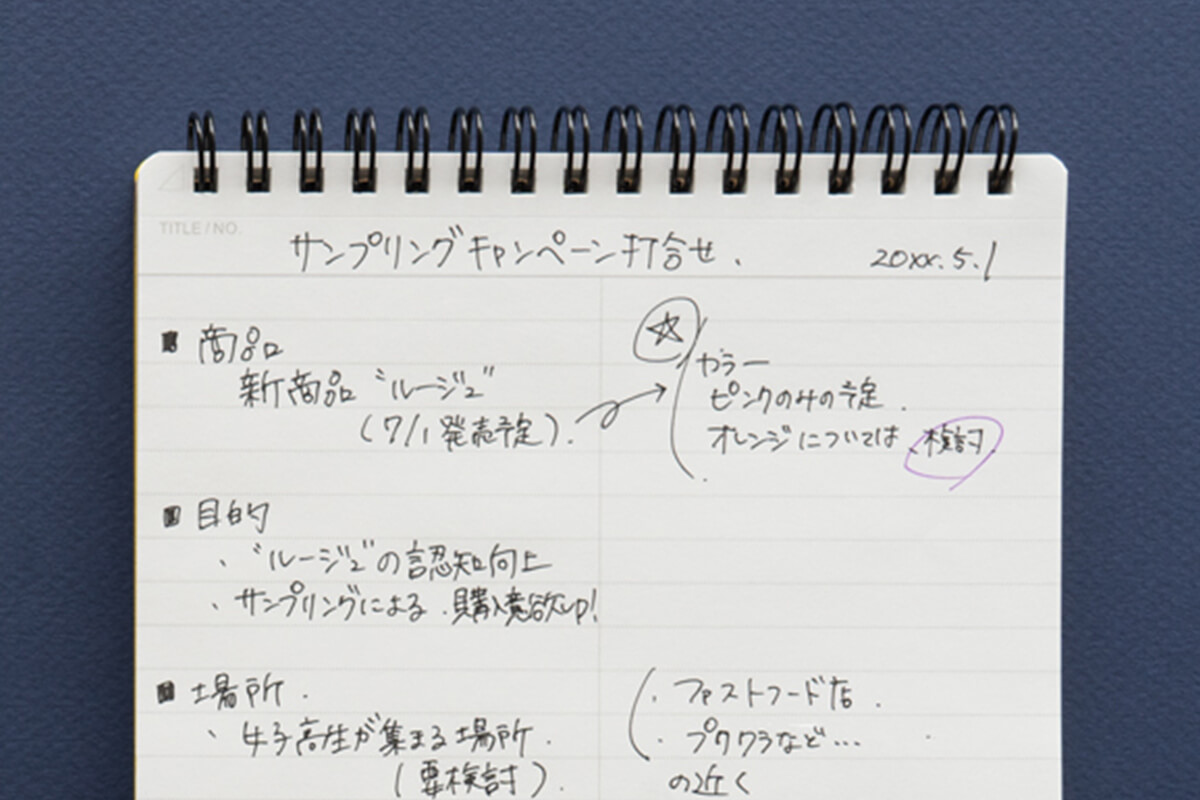 TITLE / NO.
サンプリングキャンペーン打合せ.
20xx.5.1
■ 商品
新商品 "ルージュ"
(7/1 発売予定).
☆
カラー
ピンクのみの予定.
オレンジについては、検討.
■ 目的
・"ルージュ"の認知向上
・サンプリングによる、購入意欲up!
■ 場所.
・女子高生が集まる場所.
(要検討).
・ファストフード店.
・プリクラなど…
の近く